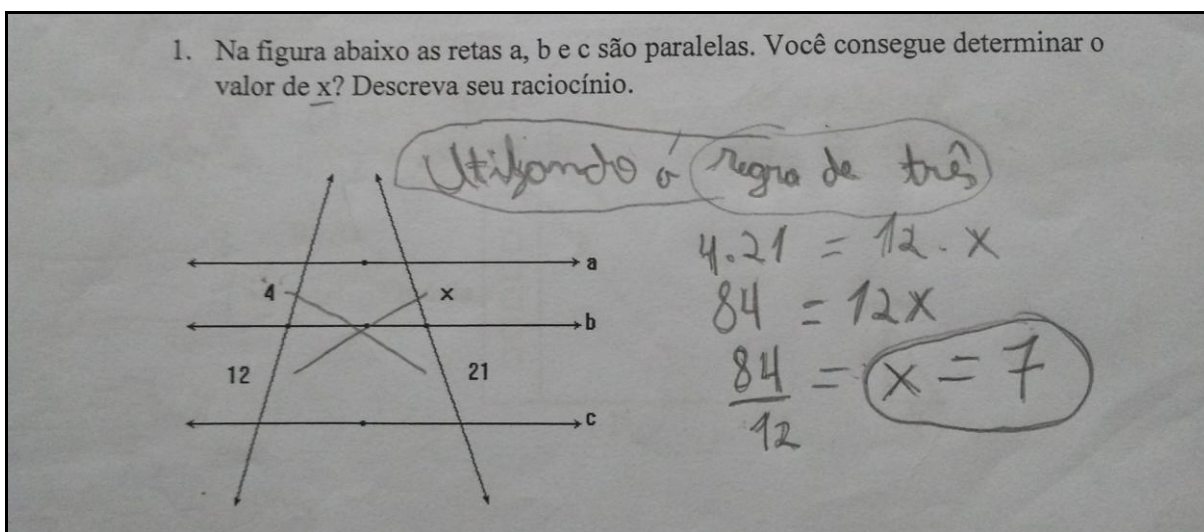 1. Na figura abaixo as retas a, b e c são paralelas. Você consegue determinar o
valor de x? Descreva seu raciocínio.
Utilizando a regra de três
4.21 = 12. x
84 = 12x
84/12 = x = 7
a
4 x
b
12 21
c